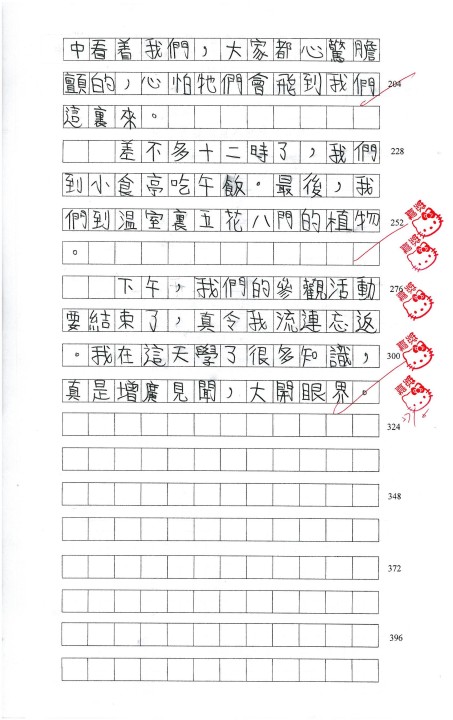 中看着我們，大家都心驚膽
顫的，心怕牠們會飛到我們
204
這裏來。
差不多十二時了，我們
228
到小食亭吃午飯。最後，我
們到溫室裏五花八門的植物
252
。
下午，我們的參觀活動
276
要結束了，真令我流連忘返
。我在這天學了很多知識，
300
真是增廣見聞，大開眼界。
324
348
372
396
嘉獎
嘉獎
嘉獎
嘉獎
嘉獎